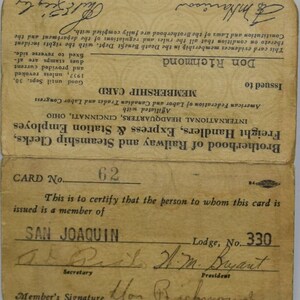 Brotherhood of Railway and Steamship Clerks,
Freight Handlers, Express & Station Employes
INTERNATIONAL HEADQUARTERS, CINCINNATI, OHIO
Affiliated with
American Federation of Labor and Trades and Labor Congress
MEMBERSHIP CARD
Issued to
Don Richmond
Good until Sep. 30,
This card evidences membership in the Death Benefit Dept. with the rights incident
thereto on condition that all the rules and regulations of the
Constitution Laws of the Brotherhood are fully complied with.
CARD No. 62
This is to certify that the person to whom this card is
issued is a member of
SAN JOAQUIN Lodge, No. 330
W. M. Bryant
Secretary President
Member's Signature Don Richmond